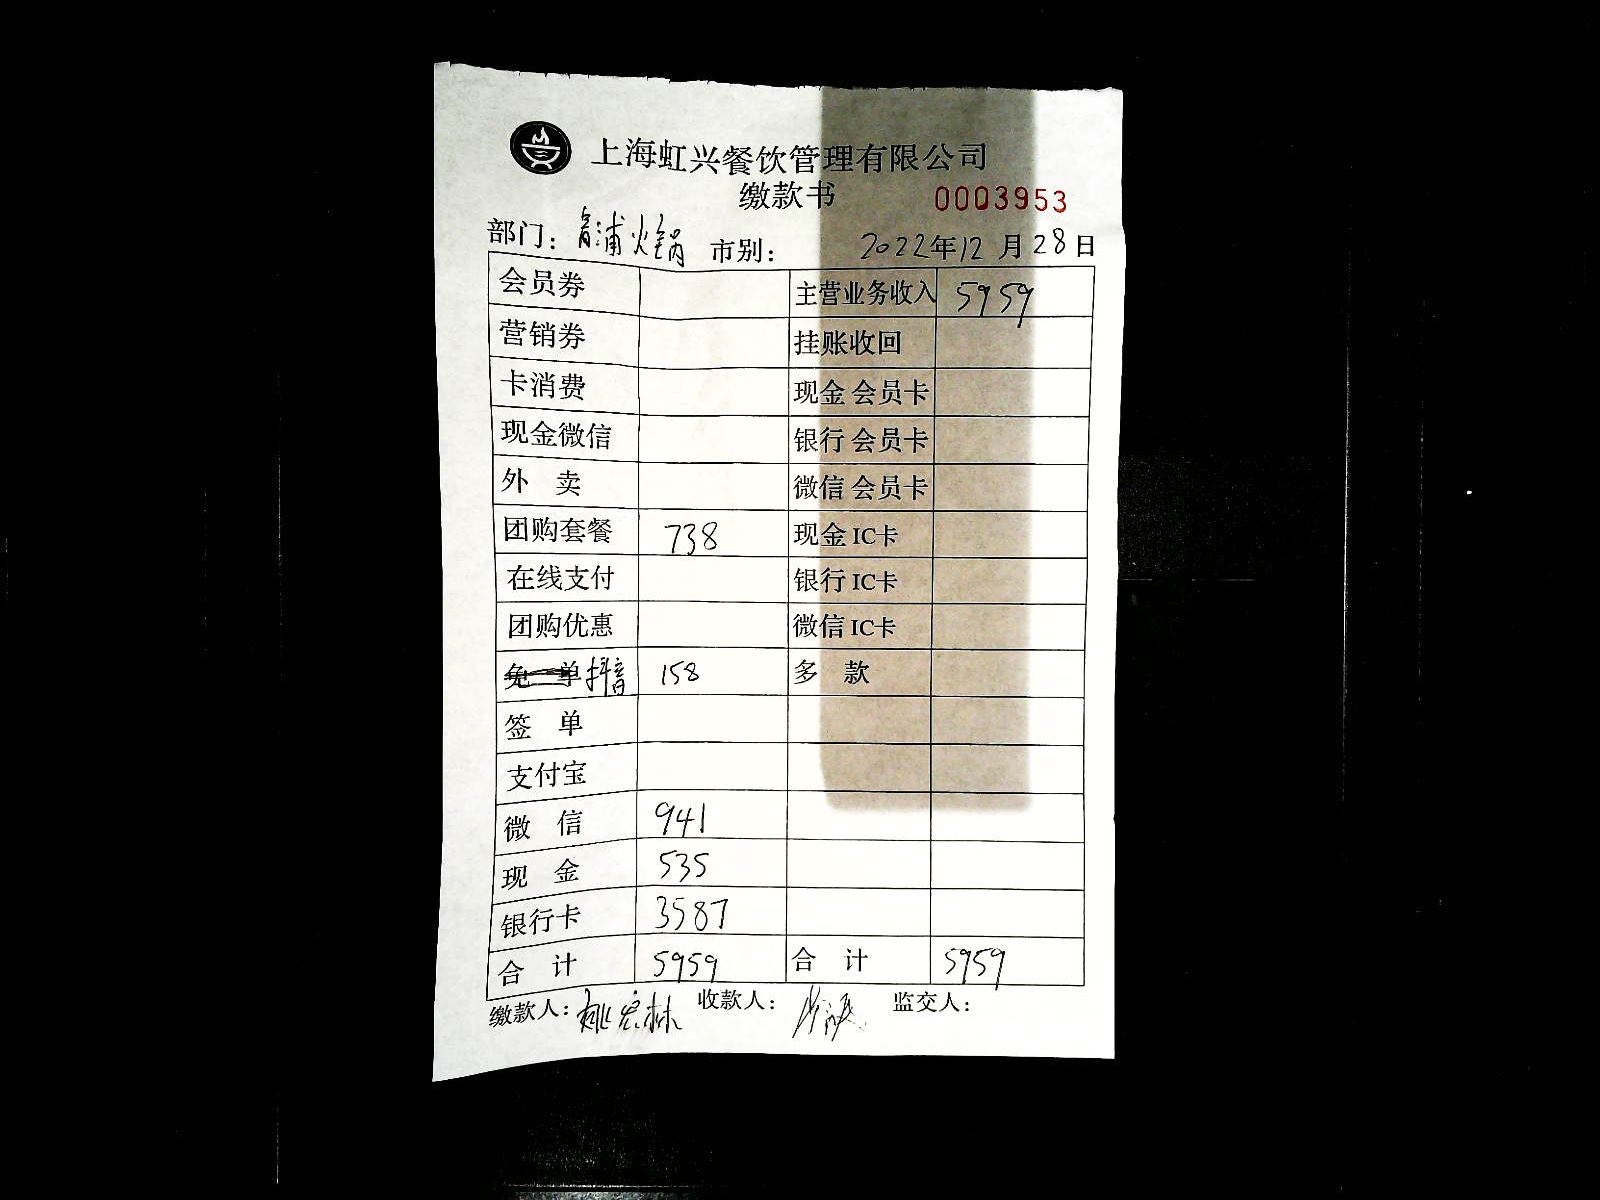 上海虹兴餐饮管理有限公司
缴款书 0003953
部门：青浦火锅 市别： 2022年12月28日
会员券 主营业务收入 5959
营销券 挂账收回
卡消费 现金会员卡
现金微信 银行会员卡
外卖 微信会员卡
团购套餐 738 现金IC卡
在线支付 银行IC卡
团购优惠 微信IC卡
免单 抖音 158 多款
签单
支付宝
微信 941
现金 535
银行卡 3587
合计 5959 合计 5959
缴款人：姚宏林 收款人： 监交人：